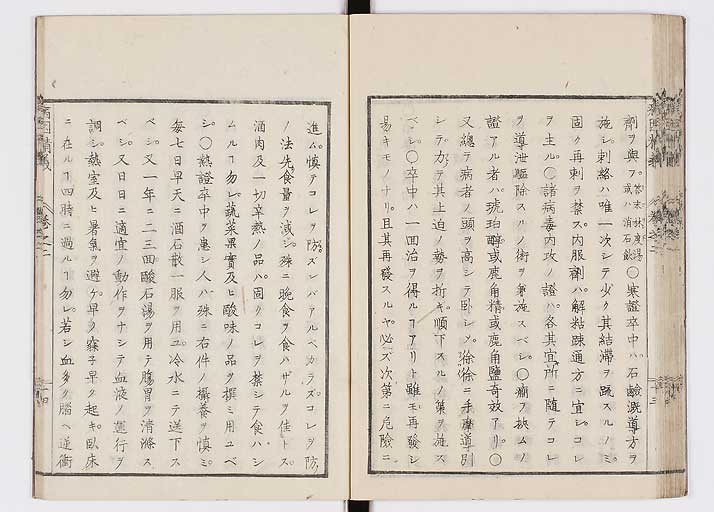 劑ヲ與フ。答末林度湯或ハ消石飲〇寒證卒中ハ石鹼溉導方ヲ
施シ刺絡ハ唯一次シテ少ク其結滯ヲ疏スルノミ
固ク再刺ヲ禁ス。内服劑ハ解粘疎通方ニ宜シコレ
ヲ主ル〇諸病毒内攻ノ證ハ各其宜所ニ隨テコレ
ヲ導泄驅除スルノ術ヲ兼施スベシ〇癇ヲ挾ムノ
證アル者ハ琥珀醇或鹿角精或鹿角鹽奇效アリ〇
又總テ病者ノ頭ヲ高シテ臥シメ。徐徐ニ手摩導引
シテ力テ其上迫ノ勢ヲ折キ順下スルノ策ヲ施ス
ベシ〇卒中ハ一回治ヲ得ルヿアリト雖モ再發シ
易キモノナリ。且其再發スルヤ必ズ次第ニ危險ニ
進ム。慎テコレヲ防ズンバアルベカラズ。コレヲ防
ノ法先食量ヲ減シ殊ニ晚食ヲ食ハザルヲ佳トス
酒肉及一切辛熱ノ品ハ固クコレヲ禁シテ食ハシ
ムルヿ勿レ蔬菜果實及ヒ酸味ノ品ヲ撰ミ用ユベ
シ〇熱證卒中ヲ患シ人ハ殊ニ右件ノ攝養ヲ慎ミ
每七日早天ニ酒石散一服ヲ用ユ。冷水ニテ送下ス
ベシ又一年ニ二三回酸石湯ヲ用テ腸胃ヲ清滌ス
ベシ。又日日ニ適宜ノ動作ヲナシテ血液ノ運行ヲ
調シ熱室及ヒ暑氣ヲ避ケ。早ク寢子早ク起キ臥床
ニ在ルヿ四時ニ過ルヿ勿レ。若シ血多ク腦ヘ逆衝